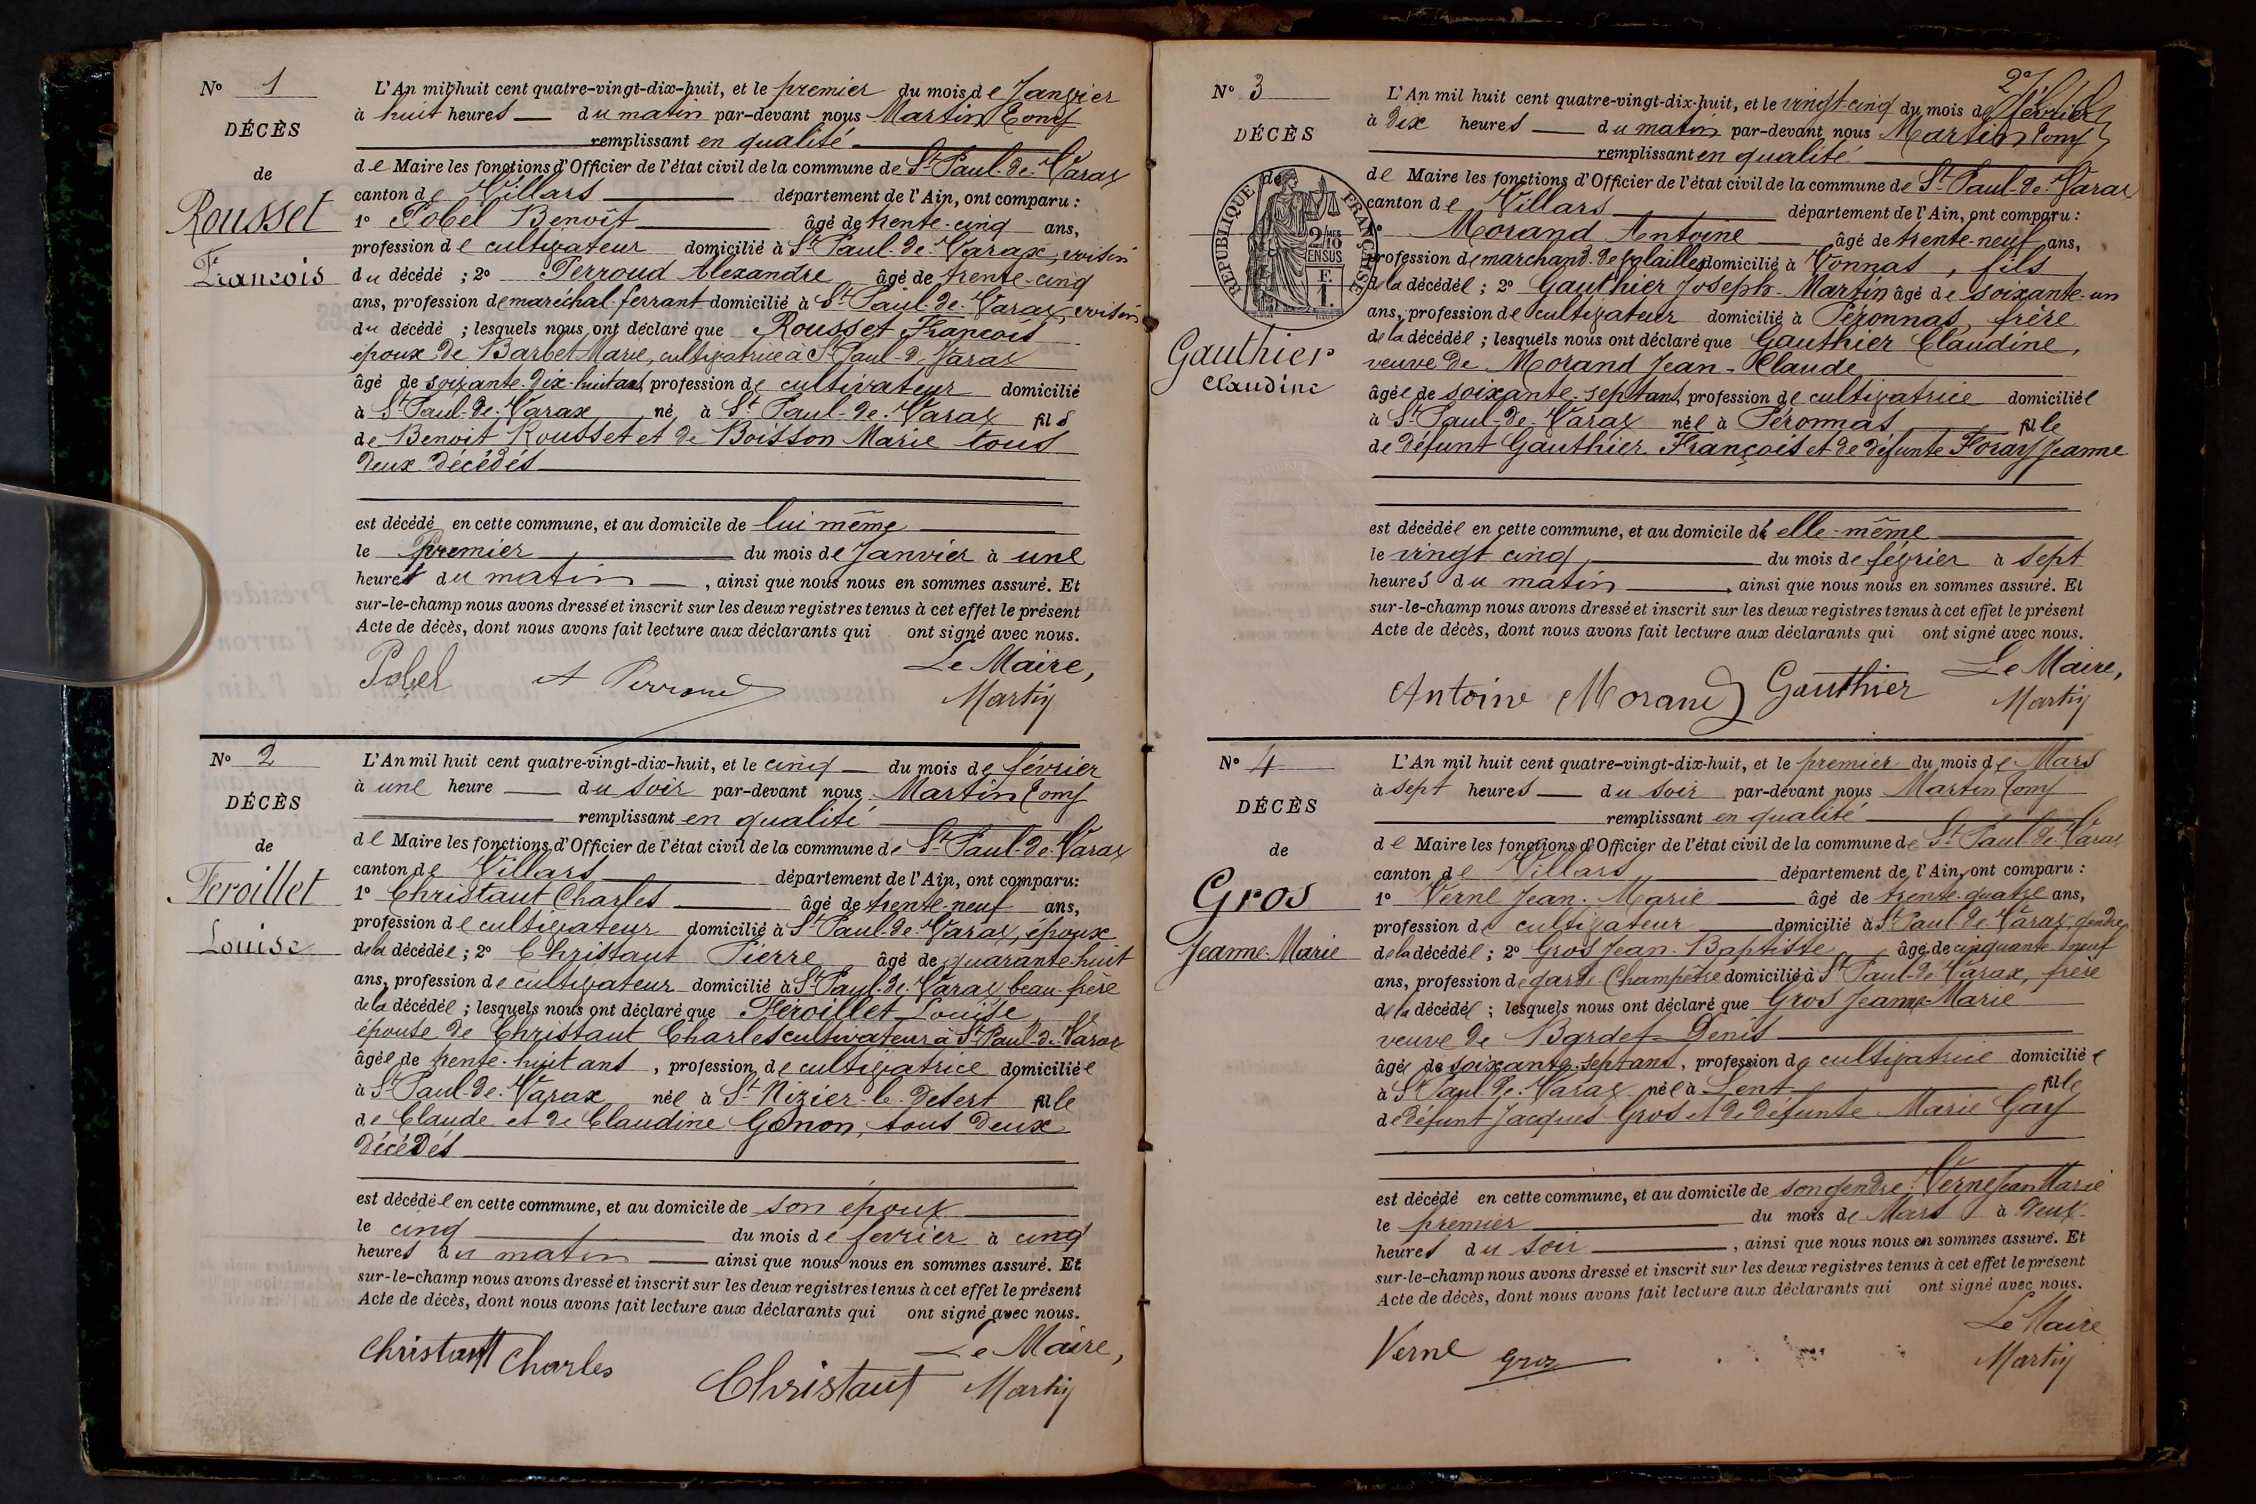 N° 1
DÉCÈS
de
Rousset
François
L'An mil huit cent quatre-vingt-dix-huit, et le premier du mois de Janvier
à huit heures du matin par-devant nous Martin Tony
remplissant en qualité
de Maire les fonctions d'Officier de l'état civil de la commune de St Paul-de-Varax
canton de Villars département de l'Ain, ont comparu :
1° Pobel Benoît âgé de trente-cinq ans,
profession de cultivateur domicilié à St Paul-de-Varax, voisin
du décédé ; 2° Perroud Alexandre âgé de trente-cinq
ans, profession de maréchal-ferrant domicilié à St Paul-de-Varax, voisin
du décédé ; lesquels nous ont déclaré que Rousset François
époux de Barbet Marie, cultivatrice à St Paul-d-Varax
âgé de soixante-dix-huit ans, profession de cultivateur domicilié
à St Paul-de-Varax né à St Paul-de-Varax fils
de Benoit Rousset et de Boisson Marie tous
deux décédés
est décédé en cette commune, et au domicile de lui même
le premier du mois de Janvier à une
heures du matin, ainsi que nous nous en sommes assuré. Et
sur-le-champ nous avons dressé et inscrit sur les deux registres tenus à cet effet le présent
Acte de décès, dont nous avons fait lecture aux déclarants qui ont signé avec nous.
Pobel A Perroud Le Maire,
Martin
N° 2
DÉCÈS
de
Feroillet
Louise
L'An mil huit cent quatre-vingt-dix-huit, et le cinq du mois de février
à une heure du soir par-devant nous Martin Tony
remplissant en qualité
de Maire les fonctions d'Officier de l'état civil de la commune de St Paul-de-Varax
canton de Villars département de l'Ain, ont comparu :
1° Christaut Charles âgé de trente-neuf ans,
profession de cultivateur domicilié à St Paul-de-Varax, époux
de la décédée ; 2° Christaut Pierre âgé de quarante huit
ans, profession de cultivateur domicilié à St Paul-de-Varax beau-frère
de la décédée ; lesquels nous ont déclaré que Féroillet Louise
épouse de Christaut Charles cultivateur à St Paul-de-Varax
âgée de trente-huit ans, profession de cultivatrice domiciliée
à St Paul-de-Varax née à St Nizier-le-Désert fille
de Claude et de Claudine Gonon, tous deux
décédés
est décédée en cette commune, et au domicile de son époux
le cinq du mois de février à cinq
heures du matin ainsi que nous nous en sommes assuré. Et
sur-le-champ nous avons dressé et inscrit sur les deux registres tenus à cet effet le présent
Acte de décès, dont nous avons fait lecture aux déclarants qui ont signé avec nous.
Christautt Charles Christaut Le Maire,
Martin
2e
N° 3
DÉCÈS
de
RÉPUBLIQUE FRANÇAISE
2/10 MES
EN SUS
Gauthier
Claudine
L'An mil huit cent quatre-vingt-dix-huit, et le vingt-cinq du mois de février
à dix heures du matin par-devant nous Martin Tony
remplissant en qualité
de Maire les fonctions d'Officier de l'état civil de la commune de St Paul-de-Varax
canton de Villars département de l'Ain, ont comparu :
Morand Antoine âgé de trente-neuf ans,
profession de marchand-de-volailles domicilié à Vonnas, fils
de la décédée ; 2° Gauthier Joseph-Martin âgé de soixante-un
ans, profession de cultivateur domicilié à Péronnas, frère
de la décédée ; lesquels nous ont déclaré que Gauthier Claudine,
veuve de Morand Jean-Claude
âgée de soixante-sept ans, profession de cultivatrice domiciliée
à St Paul-de-Varax née à Péronnas fille
de défunt Gauthier François et de défunte Foray Jeanne
est décédée en cette commune, et au domicile d'elle-même
le vingt cinq du mois de février à sept
heures du matin, ainsi que nous nous en sommes assuré. Et
sur-le-champ nous avons dressé et inscrit sur les deux registres tenus à cet effet le présent
Acte de décès, dont nous avons fait lecture aux déclarants qui ont signé avec nous.
Antoine Morand Gauthier Le Maire,
Martin
N° 4
DÉCÈS
de
Gros
Jeanne-Marie
L'An mil huit cent quatre-vingt-dix-huit, et le premier du mois de Mars
à sept heures du soir par-devant nous Martin Tony
remplissant en qualité
de Maire les fonctions d'Officier de l'état civil de la commune de St Paul-de-Varax
canton de Villars département de l'Ain, ont comparu :
1° Verne Jean-Marie âgé de trente-quatre ans,
profession de cultivateur domicilié à St Paul-de-Varax, gendre
de la décédée ; 2° Gros Jean-Baptiste âgé de cinquante-neuf
ans, profession de garde Champêtre domicilié à St Paul-de-Varax, frère
de la décédée ; lesquels nous ont déclaré que Gros Jeanne-Marie
veuve de Bardet Denis
âgée de soixante-sept ans, profession de cultivatrice domiciliée
à St Paul-de-Varax née à Lent fille
de défunt Jacques Gros et de défunte Marie Gay
est décédé en cette commune, et au domicile de son gendre Verne Jean Marie
le premier du mois de Mars à deux
heures du soir, ainsi que nous nous en sommes assuré. Et
sur-le-champ nous avons dressé et inscrit sur les deux registres tenus à cet effet le présent
Acte de décès, dont nous avons fait lecture aux déclarants qui ont signé avec nous.
Verne Gros Le Maire
Martin